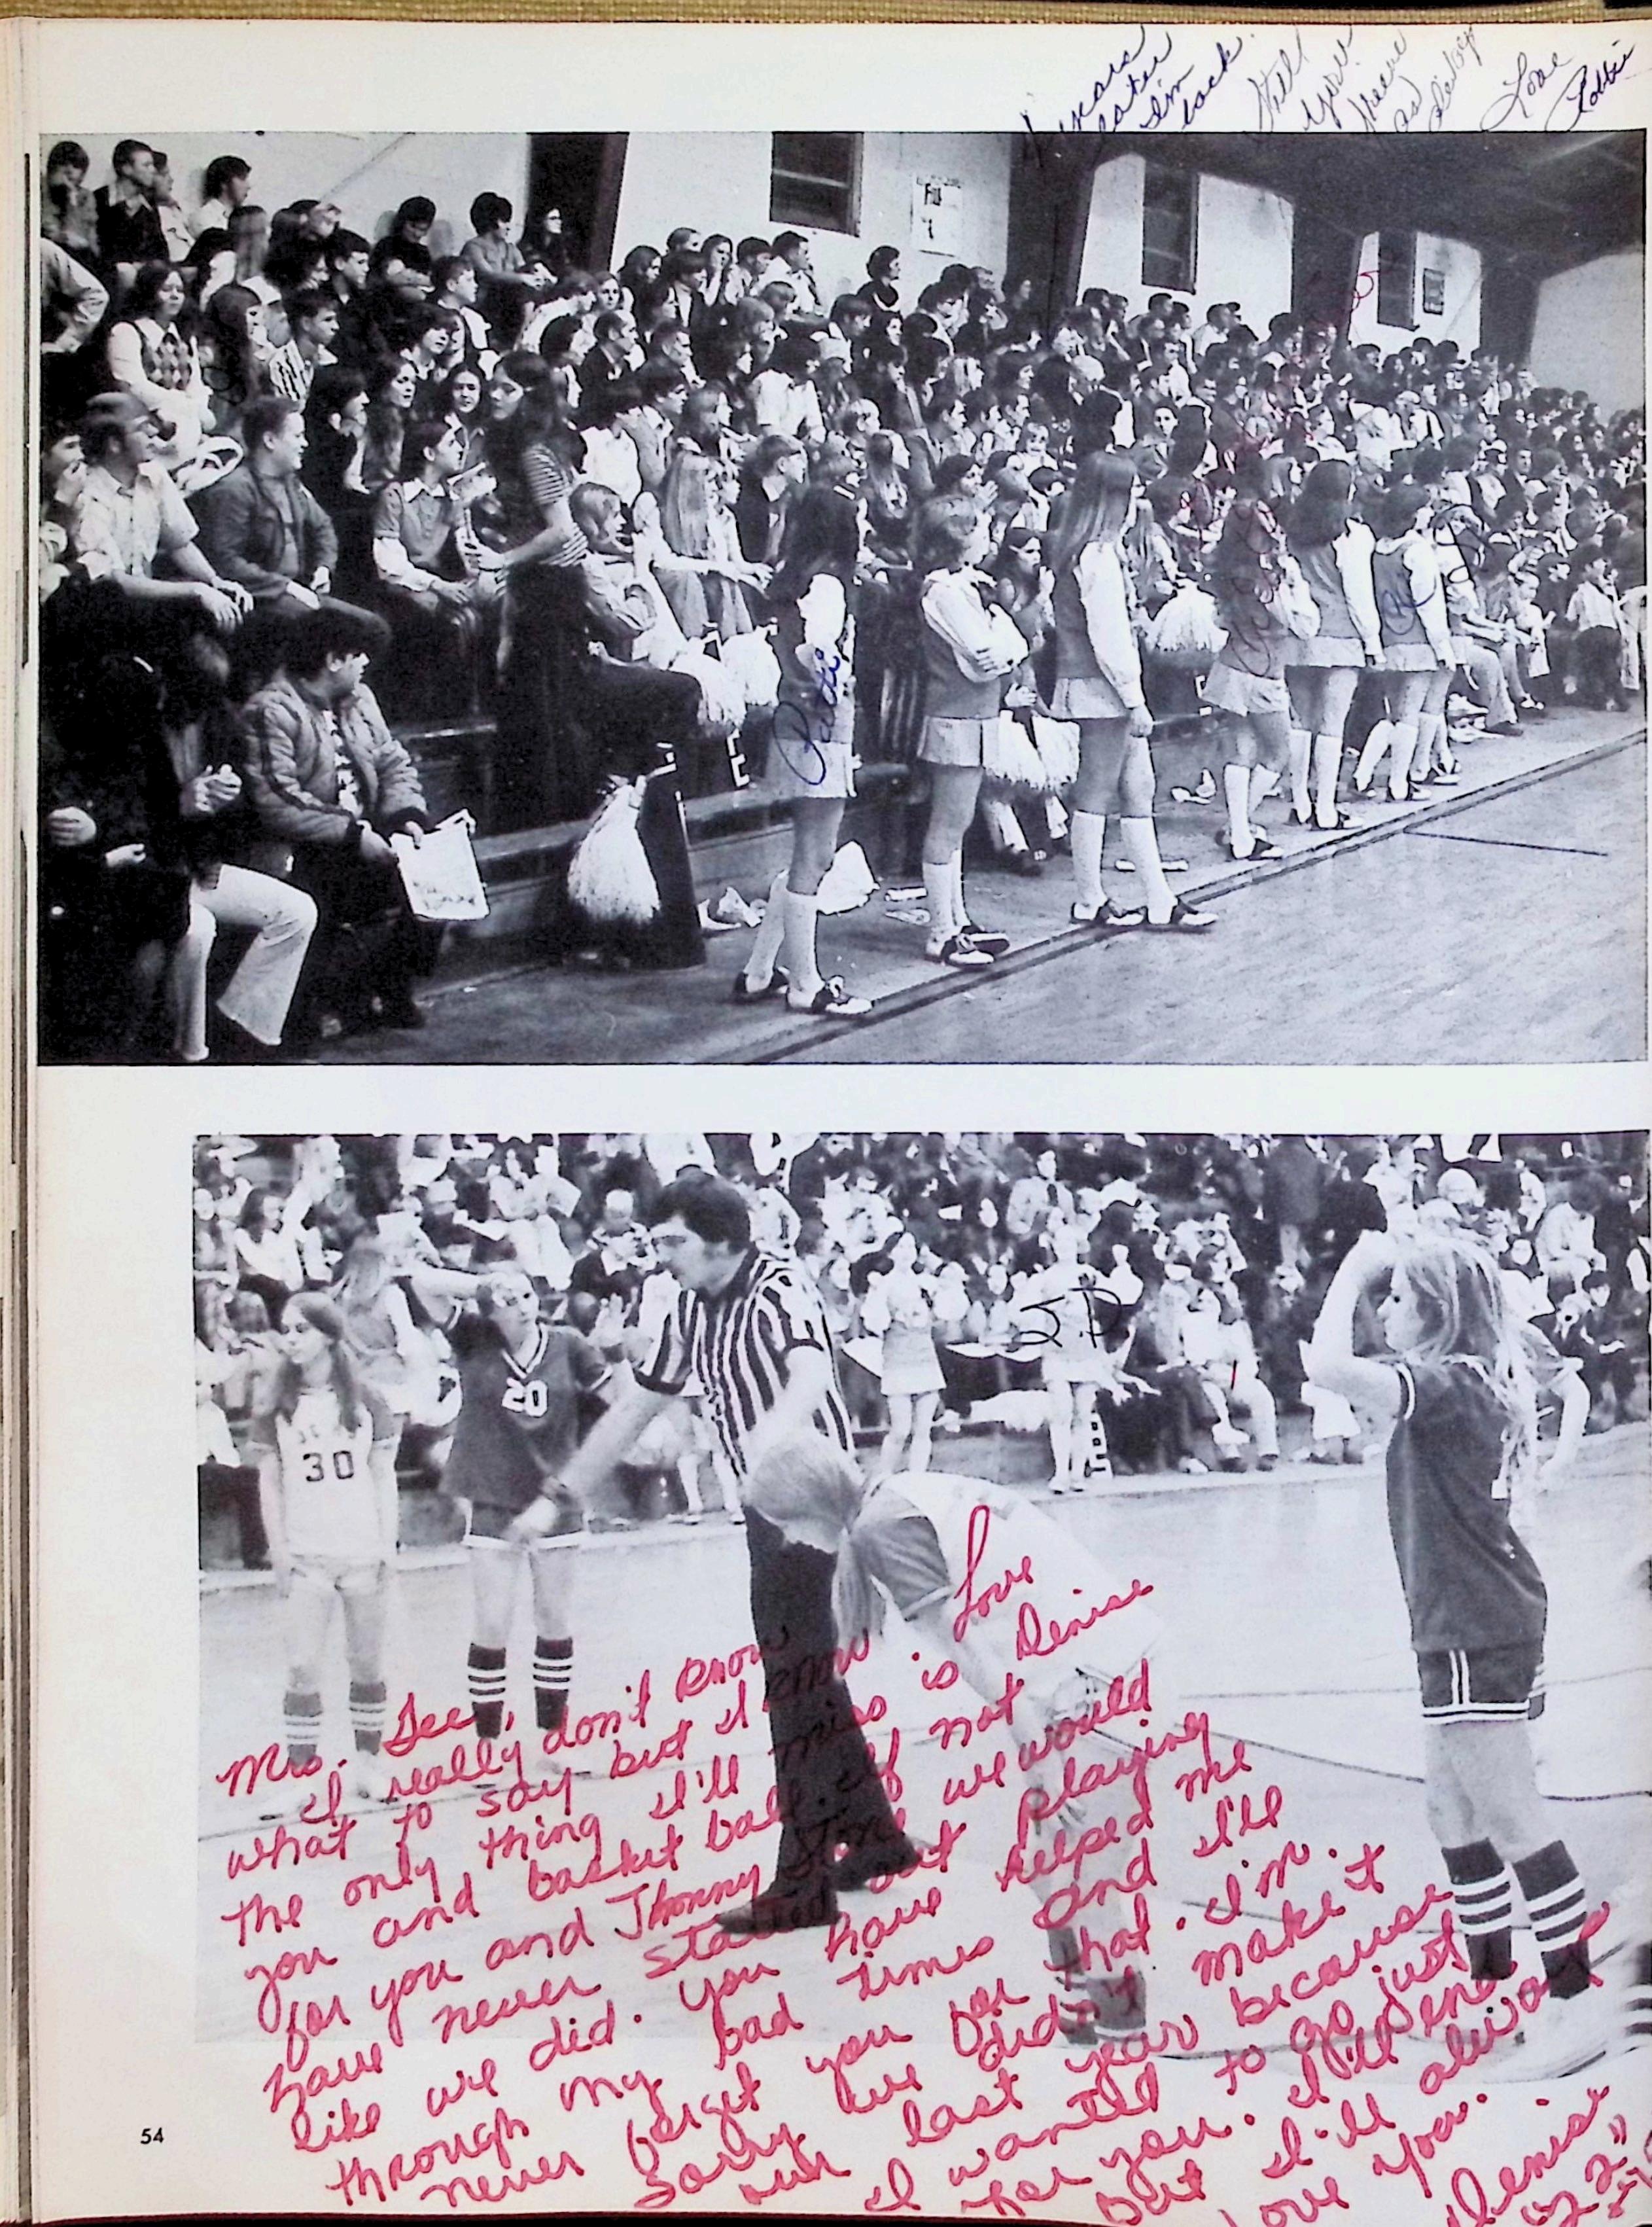 years
later
I'm
back.
Still
your
as
Love
Patti
20
30
JP
Love
Denise
Mrs. Gee,
I really don't know
what to say but I know
the only thing I'll miss is
you and basket ball. If not
for you and Jhonny Stone we would
have never started out playing
like we did. You have helped me
through my bad times and I'll
never forget you for that. I'm
sorry we didn't make it
our last year because
I wanted to go just
for you.
But I'll always
love you.
Denise
54